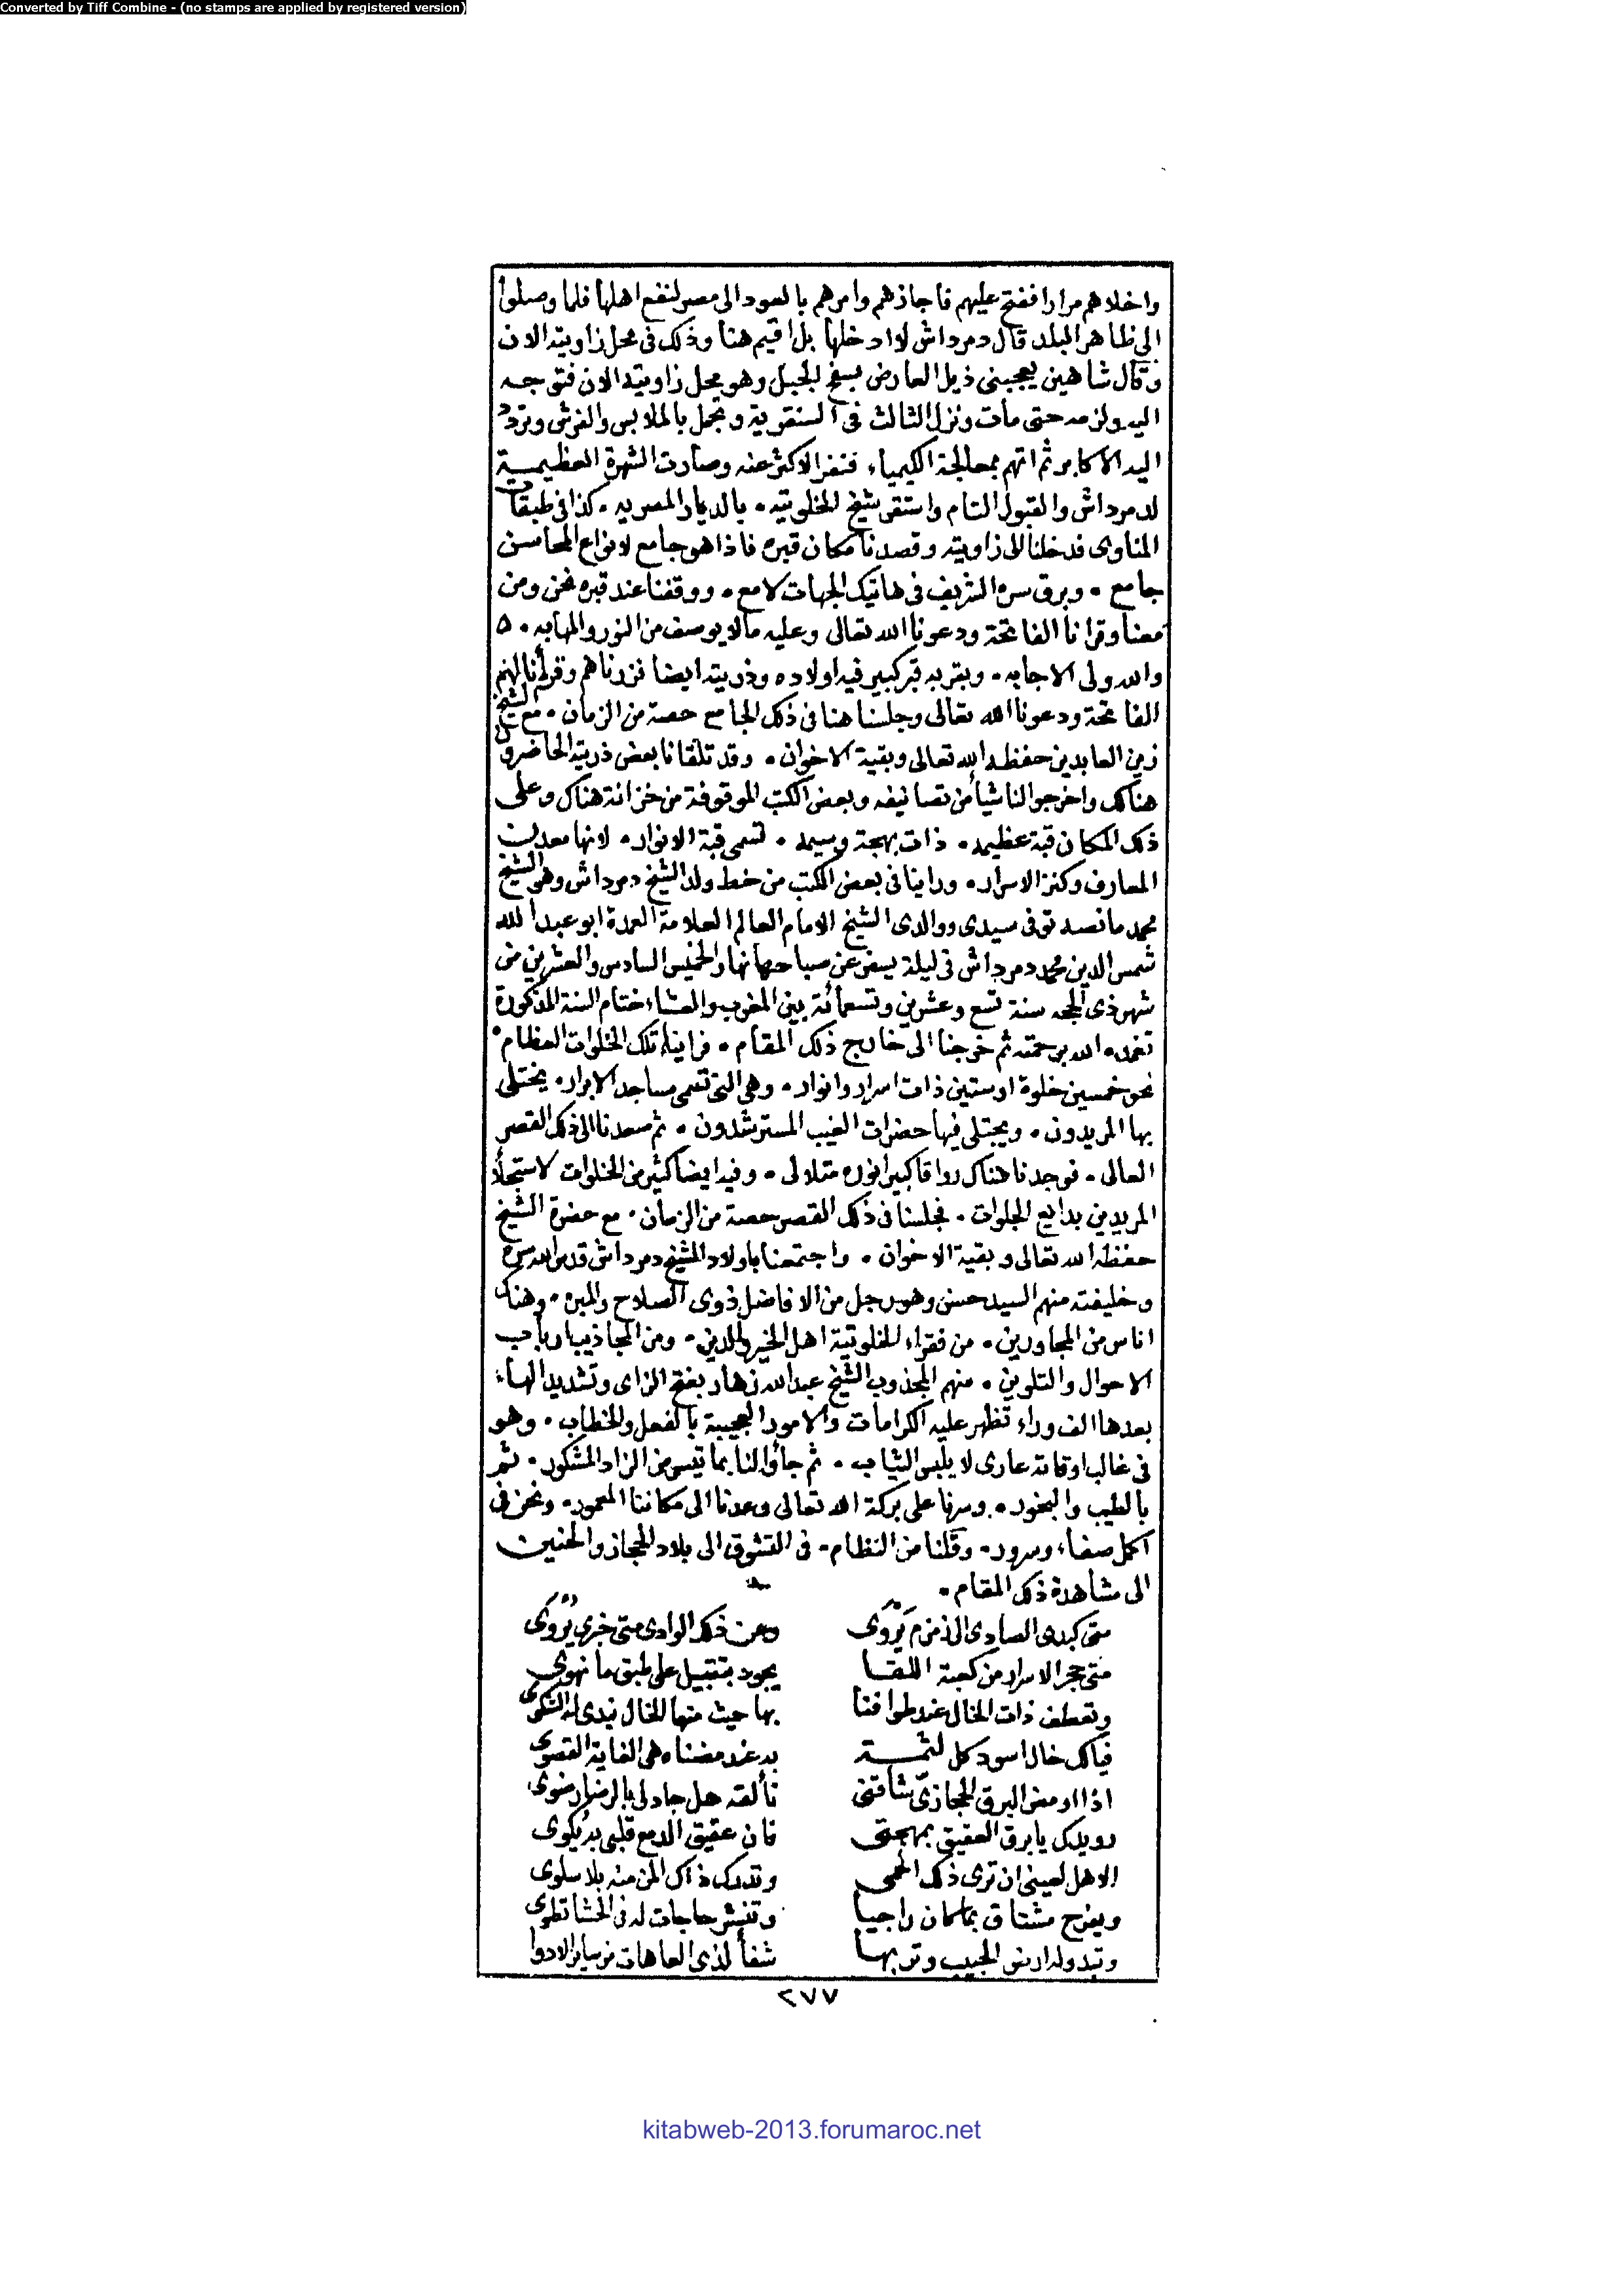 Converted by Tiff Combine - (no stamps are applied by registered version)
واخلاهم مرارا ففتح عليهم فاجازهم وامرهم بالعود الى مصر لنفع اهلها فلما وصلوا
الى ظاهر البلد قال دمرداش لا ادخلها بل اقيم هنا وذلك فى محل زاويته الان
وقال شاهين يعجبنى ذيل العارض بسفح الجبل وهو محل زاويته الان فتوجه
اليه ولزمه حتى مات ونزل الثالث فى السنقرية وتجمل بالملابس والفرش وتردد
اليه الاكابر ثم اتهم بمعالجة الكيمياء فنفر الاكثر عنه وصارت الشهرة العظيمة
لدمرداش والقبول التام واستقر شيخ الخلوتيه ٠ بالديار المصريه ٠ كذا فى طبقات
المناوى فدخلنا الى زاويته وقصدنا مكان قبره فاذا هو جامع لانواع المحاسن
جامع ٠ وبرق سره الشريف فى هاتيك الجهات لامع ٠ ووقفنا عند قبره نحن ومن
معنا وقرانا الفاتحة ودعونا الله تعالى وعليه مالا يوصف من النور والمهابه ٠ ٥
والله ولى الاجابه ٠ وبقربه قبر كبير فيه اولاده وذريته ايضا فزرناهم وقرأنا لهم
الفاتحة ودعونا الله تعالى وجلسنا هنا فى ذلك الجامع حصة من الزمان ٠ مع الشيخ
زين العابدين حفظه الله تعالى وبقية الاخوان ٠ وقد تلقانا بعض ذريته الحاضرون
هناك واخرجوا لنا شيأ من تصانيفه وبعض الكتب الموقوفة من خزانة هناك وعلى
ذلك المكان قبة عظيمه ٠ ذات بهجة وسيمه ٠ تسمى قبة الانوار ٠ لانها معدن
المعارف وكنز الاسرار ٠ وراينا فى بعض الكتب من خط ولد الشيخ دمرداش وهو الشيخ
محمد ما نصه توفى سيدى ووالدى الشيخ الامام العالم العلامة العمدة ابو عبد الله
شمس الدين محمد دمرداش فى ليلة يسفر عن صباحها نهار الخميس السادس والعشرين من
شهر ذى الحجه سنة تسع وعشرين وتسعمائة بين المغرب والعشاء ختام السنة المذكورة
تغمده الله برحمته ثم خرجنا الى خارج ذلك المقام ٠ فراينا تلك الخلوات العظام ٠
نحو خمسين خلوة او ستين ذات اسرار وانوار ٠ وهى التى تسمى مساجد الابرار ٠ يختلى
بها المريدون ٠ ويجتلى فيها حضرات الغيب المسترشدون ٠ ثم صعدنا الى ذلك القصر
العالى ٠ فوجدنا هناك رواقا كبيرا نوره متلالى ٠ وفيه ايضا كثير من الخلوات لاستجلاء
المريدين بدايع الجلوات ٠ فجلسنا فى ذلك القصر حصة من الزمان ٠ مع حضرة الشيخ
حفظه الله تعالى وبقية الاخوان ٠ واجتمعنا باولاد الشيخ دمرداش قدس الله سره
وخليفته منهم السيد حسن وهو رجل من الافاضل ذوى الصلاح والمبره ٠ وهناك
اناس من المجاورين ٠ من فقراء الخلوتية اهل الخير والدين ٠ ومن المجاذيب ارباب
الاحوال والتلوين ٠ منهم المجذوب الشيخ عبد الله زهار بفتح الزاى وتشديد الهاء
بعدها الف وراء تظهر عليه الكرامات والامور العجيبة بالفعل والخطاب ٠ وهو
فى غالب اوقاته عارى لا يلبس الثياب ٠ ثم جاؤا لنا بما تيسر من الزاد المشكور ٠ ثم
بالطيب والبخور ٠ وسرنا على بركة الله تعالى وعدنا الى مكاننا المعمور ٠ ونحن فى
اكمل صفاء وسرور ٠ وقلنا من النظام ٠ فى التشوق الى بلاد الحجاز والحنين
الى مشاهدة ذلك المقام ٠
متى كبدى الصادى الى زمزم تروى    وعن ذلك الوادى متى خبرى يروى
متى حجر الاسرار من كعبة اللقا    يجود بتقبيل على طبق ما نهوى
وتعطف ذات الخال عند طوافنا    بها حيث منها للخال نبدى له الشكوى
فيالك خال اسود كل لثمة    به عند مضناه هى الغاية القصوى
اذا اومض البرق الحجازى شاقنى    تألقه هل جاد لى بالرضا رضوى
رويدك يا برق العقيق بمهجتى    فان عقيق الدمع قلبى به يكوى
الا هل لعينى ان ترى ذلك الحمى    وتدرك ذاك المن منه بلا سلوى
ويفرح مشتاق بما كان راجيا    وتنشر حاجات له فى الحشا تطوى
وتبدو له ارض الحبيب وتربها    شفأ لذى العاهات من ساير الادوا
٢٧٧
kitabweb-2013.forumaroc.net